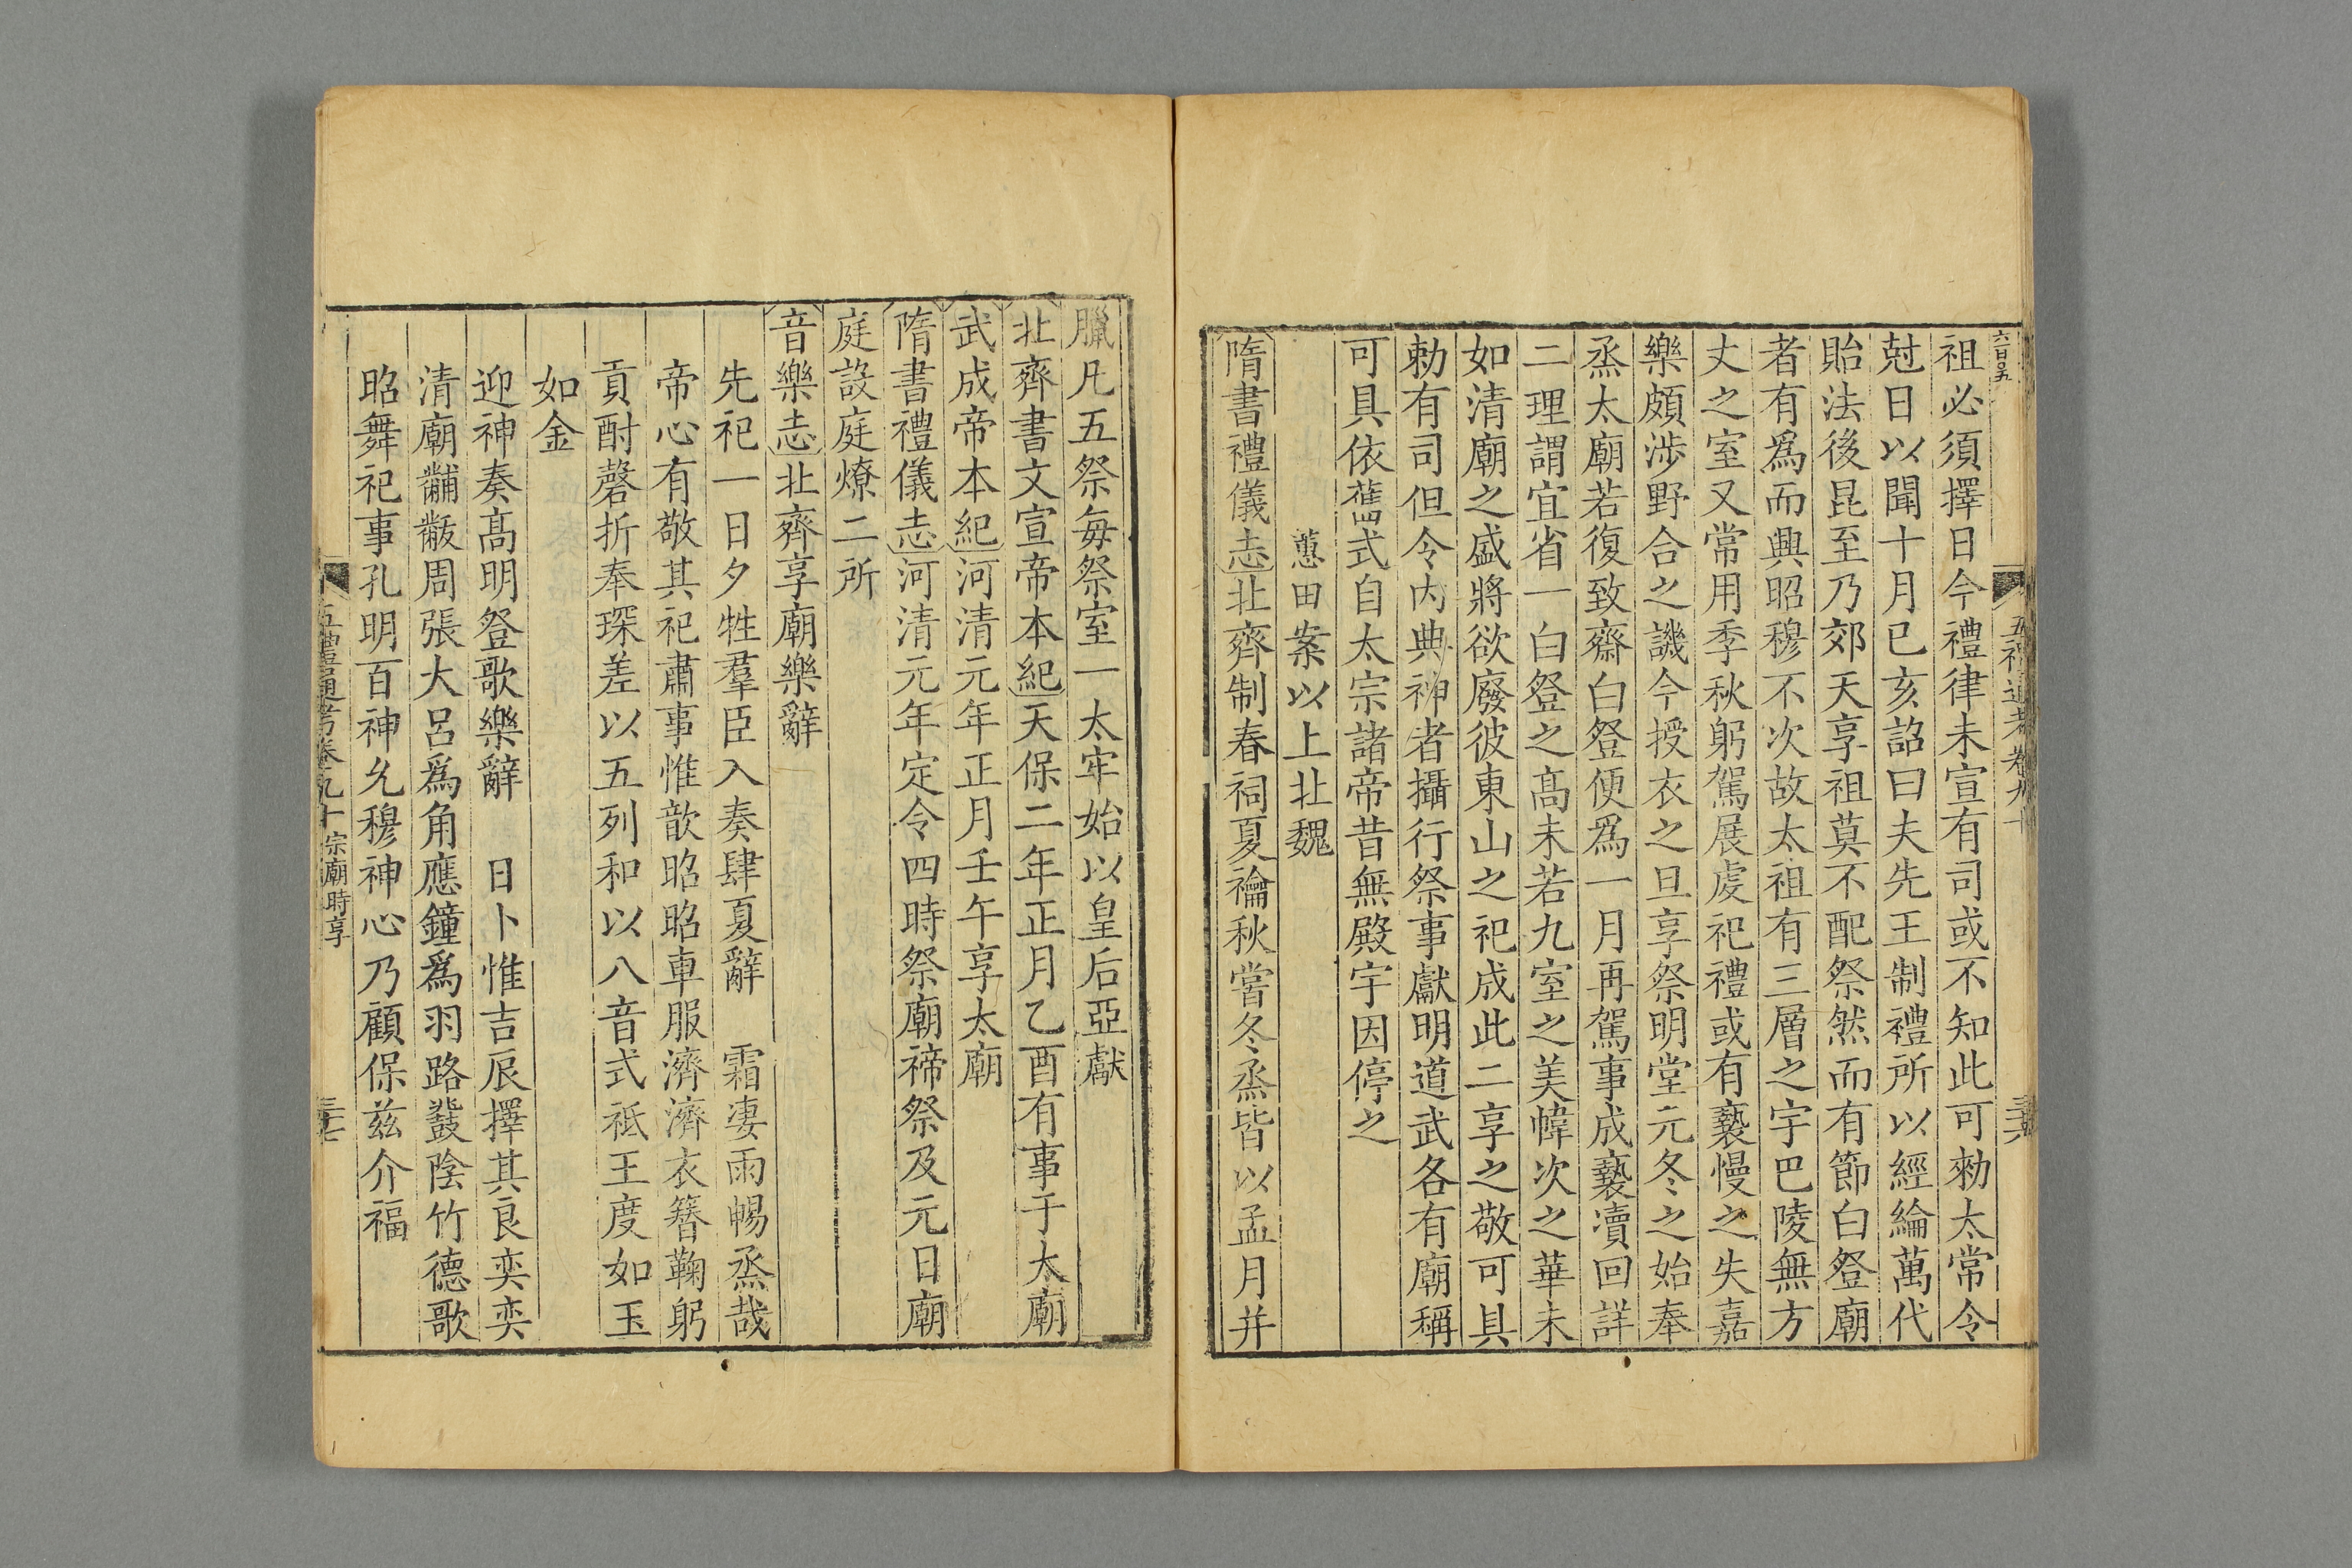 六百〇五
五禮通考卷九十
三六
祖必須擇日今禮律未宣有司或不知此可勑太常令
尅日以聞十月已亥詔曰夫先王制禮所以經綸萬代
貽法後昆至乃郊天享祖莫不配祭然而有節白登廟
者有爲而興昭穆不次故太祖有三層之宇巴陵無方
丈之室又常用季秋躬駕展虔祀禮或有褻慢之失嘉
樂頗涉野合之譏今授衣之旦享祭明堂元冬之始奉
烝太廟若復致齋白登便爲一月再駕事成褻瀆回詳
二理謂宜省一白登之髙未若九室之美幃次之華未
如清廟之盛將欲廢彼東山之祀成此二享之敬可具
勅有司但令内典神者攝行祭事獻明道武各有廟稱
可具依舊式自太宗諸帝昔無殿宇因停之
蕙田案以上北魏
隋書禮儀志北齊制春祠夏禴秋嘗冬烝皆以孟月并
臘凡五祭每祭室一太牢始以皇后亞獻
北齊書文宣帝本紀天保二年正月乙酉有事于太廟
武成帝本紀河清元年正月壬午享太廟
隋書禮儀志河清元年定令四時祭廟禘祭及元日廟
庭設庭燎二所
音樂志北齊享廟樂辭
先祀一日夕牲羣臣入奏肆夏辭　霜凄雨暢烝哉
帝心有敬其祀肅事惟歆昭昭車服濟濟衣簪鞠躬
貢酎磬折奉琛差以五列和以八音式祗王度如玉
如金
迎神奏髙明登歌樂辭　日卜惟吉辰擇其良奕奕
清廟黼黻周張大呂爲角應鐘爲羽路鼗陰竹德歌
昭舞祀事孔明百神允穆神心乃顧保兹介福
五禮通考卷九十宗廟時享
三七